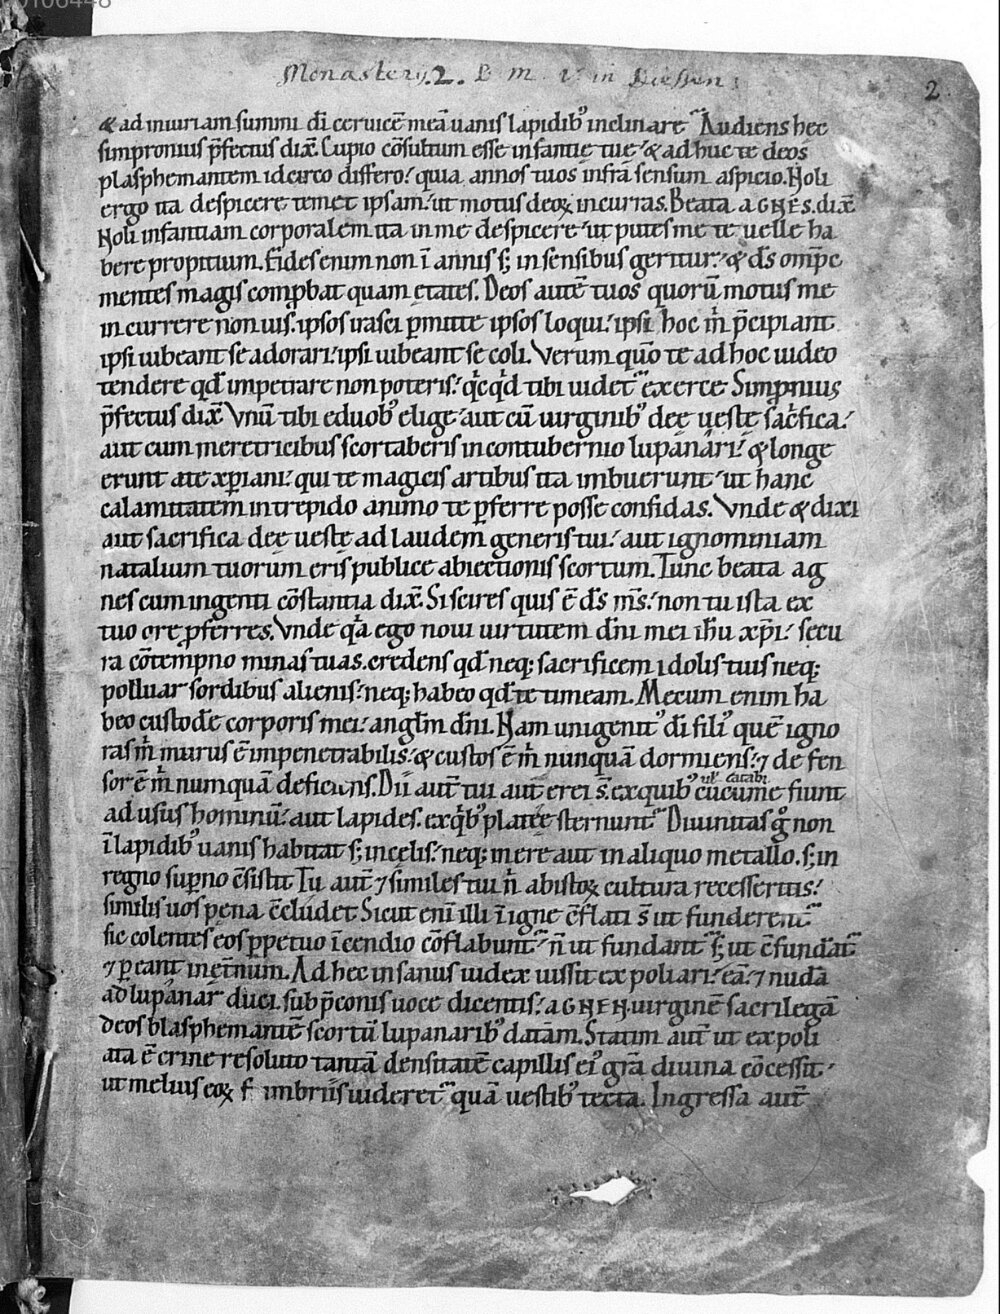 00106448
Monasterij. 2. B. m. v. in Diessen;
2
& ad iniuriam summi dī ceruicē meā uanis lapidib' inclinare. Audiens hec
simpronius p̄fectus dix̄. Cupio cōsultum esse infantię tuę. & ad huc te deos
plasphemantem idcirco differo. quia annos tuos infra sensum aspicio. Noli
ergo ita despicere temet ipsam. ut motus deoꝝ incurras. Beata AGNES. dix̄
Noli infantiam corporalem ita in me despicere. ut putes me te uelle ha
bere propitium. Fides enim non ī annis s; in sensibus geritur. & d̄s omp̄c
mentes magis comp̱bat quam etates. Deos autē tuos quorū motus me
incurrere non uis. ipsos irasci ꝑmitte ipsos loqui. ipsi hoc m̄ p̄cipiant
ipsi iubeant se adorari. ipsi iubeant se coli. Verum quō te ad hoc uideo
tendere qd̄ impetrare non poteris. qͥcqͥd tibi uidet̄ exerce. Simp̱nius
p̄fectus dix̄. Vnū tibi eduob' elige. aut cū uirginib' deę uestę sacͥfica.
aut cum meretricibus scortaberis in contubernio lupanari. & longe
erunt ate xp̄iani. qui te magicis artibus ita imbuerunt. ut hanc
calamitatem intrepido animo te ꝑferre posse confidas. Vnde & dixi
aut sacrifica deę uestę ad laudem generis tui. aut ignominiam
natalium tuorum eris publicę abiectionis scortum. Tunc beata ag
nes cum ingenti cōstantia dix̄. Si scires quis ē d̄s m̄s. non tu ista ex
tuo ore ꝓferres. Vnde qͣa ego noui uirtutem dn̄i mei ih̄u xp̄i. secu
ra cōtempno minas tuas. credens qd̄ neq; sacrificem idolis tuis neq;
polluar sordibus alienis. neq; habeo qd̄ te timeam. Mecum enim ha
beo custodē corporis mei. angłm dn̄i. Nam unigenit' dī fili' quē igno
ras m̄ murus ē impenetrabilis. & custos ē m̄ nunquā dormiens. ⁊ defen
sor ē m̄ numquā deficiens. Dii aut̄ tui aut erei s̄. ex quib' cucume fiunt
uł cacabi
ad usus hominū. aut lapides. ex qͥb' plateę sternunt̄. Diuinitas gͦ non
ī lapidib' uanis habitat s; in celis. neq; in ere aut in aliquo metallo. s; in
regno suꝑno c̄sistit. Tu aut̄ ⁊ similes tui n̄ abistoꝝ cultura recesseritis.
similis uos pena c̄cludet. Sicut enī illi ī igne c̄flati s̄ ut funderent̄
sic colentes eos ꝑpetuo īcendio cōflabunt̄. n̄ ut fundant̄ s; ut c̄fundāt̄
⁊ ꝑeant inet̄num. Ad hec insanus iudex iussit expoliari eā. ⁊ nudā
ad lupanar duci. sub p̄conis uoce dicentis. AGNEN. uirginē sacrilegā
deos blasphemantē scortū lupanarib' datam. Statim aut̄ ut expoli
ata ē crine resoluto tantā densitatē capillis ei' gr̄a diuina cōcessit.
ut melius eoꝝ fimbriis uideret̄ quā uestib' tecta. Ingressa aut̄